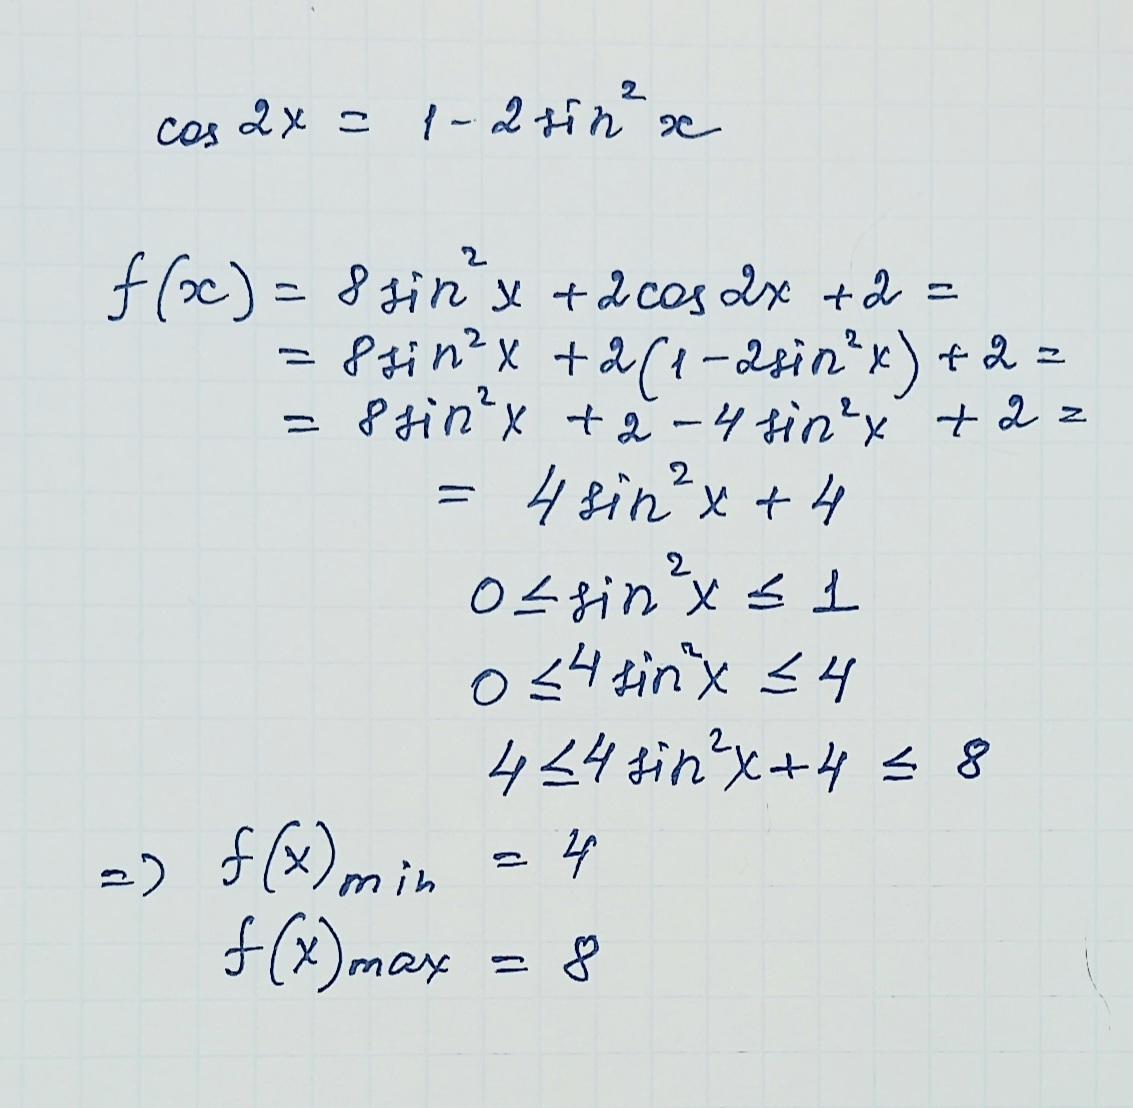 cos 2x = 1 - 2 sin² x
f(x) = 8 sin² x + 2 cos 2x + 2 =
= 8 sin² x + 2(1 - 2 sin² x) + 2 =
= 8 sin² x + 2 - 4 sin² x + 2 =
= 4 sin² x + 4
0 ≤ sin² x ≤ 1
0 ≤ 4 sin² x ≤ 4
4 ≤ 4 sin² x + 4 ≤ 8
=> f(x) min = 4
f(x) max = 8